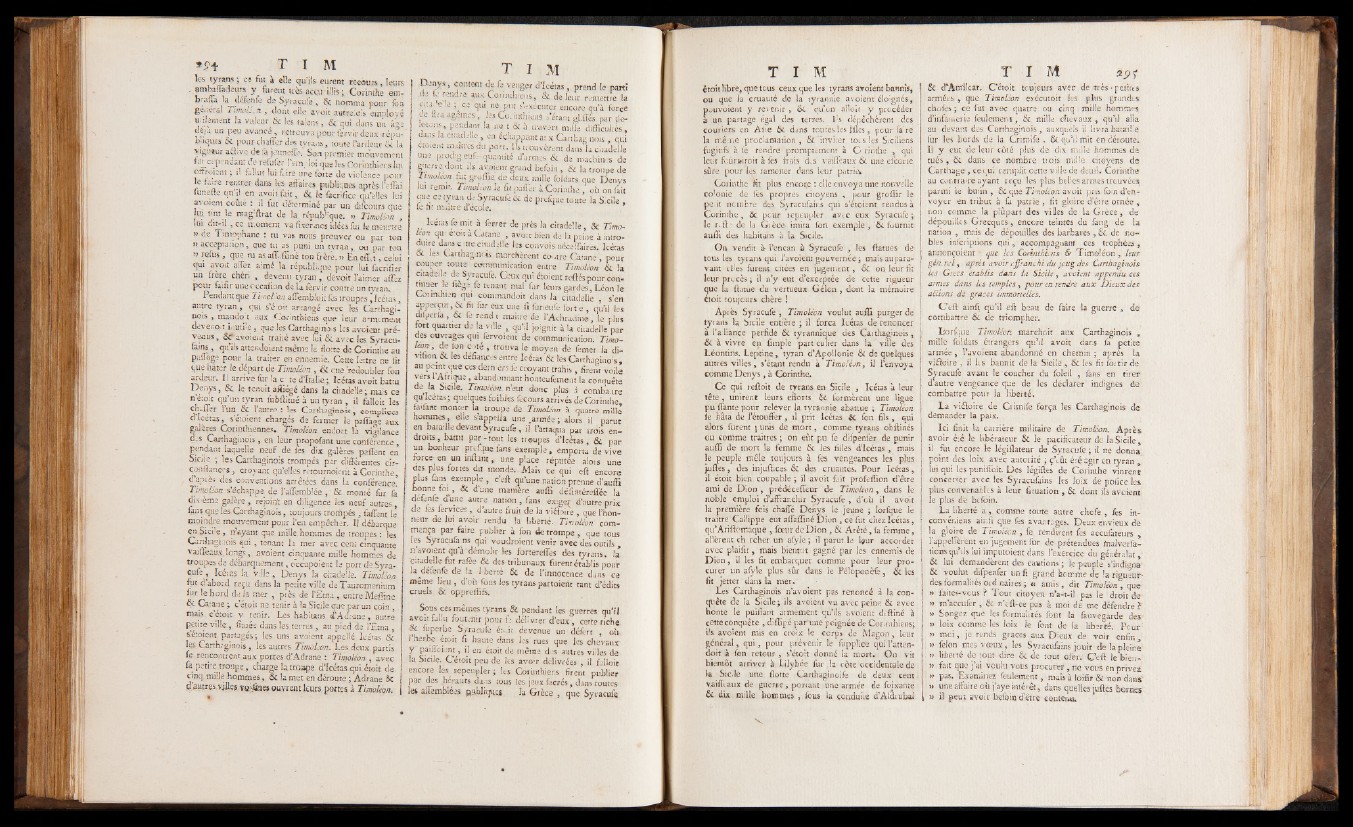 294 T I M
les tyrans ; ce fut à elle qu'ils eurent recours, leurs
ambassadeurs y furent très-accueillis ; Corinthe em-
brassa la défense de Syracuse, & nomma pour son
général Timoléon, dont elle avoit autrefois employé
utilement la valeur & les talens, & qui dans un âge
déjà un peu avancé, retrouva pour servir deux répu-
bliques & pour chasser des tyrans, toute l'ardeur & la
vigueur active de sa jeunesse. Son premier mouvement
fut cependant de refuser l'emploi que les Corinthiens lui
offroient ; il fallut lui faire une sorte de violence pour
le faire rentrer dans les affaires publiques après l'essai
funeste qu'il en avoit fait, & le sacrifice qu'elles lui
avoient coûté : il fut déterminé par un discours que
lui tint le magistrat de la république. « Timoléon,
lui dit-il, ce moment va fixer nos idées sur le meurtre
» de Timophane : tu vas nous prouver ou par ton
» acceptation, que tu as puni un tyran, ou par ton
» refus, que tu as assassiné ton frère. » En effet, celui
qui avoit assez aimé la république pour lui sacrifier
un frère chéri, devenu tyran, devoit l'aimer assez
pour saisir une occasion de la servir contre un tyran.
Pendant que Timoléon assembloit ses troupes, Icétas,
autre tyran, qui s'étoit arrangé avec les Carthagi-
nois, manda aux Corinthiens que leur armement
devenoit inutile ; que les Carthaginois les avoient pré-
venus, & avoient traité avec lui & avec les Syracu-
sains, qu'ils attendoient même la flotte de Corinthe au
passage pour la traiter en ennemie. Cette lettre ne fit
que hâter le départ de Timoléon, & que redoubler son
ardeur. Il arrive sur la côte d'Italie ; Icétas avoit battu
Denys, & le tenoit assiégé dans la citadelle ; mais ce
n'étoit qu'un tyran substitué à un tyran, il falloit les
chasser l'un & l'autre : les Carthaginois, complices
d'Icétas, s'étoient chargés de fermer le passage aux
galères Corinthiennes. Timoléon endort la vigilance
des Carthaginois, en leur proposant une conférence,
pendant laquelle neuf de ses dix galères passent en
Sicile ; les Carthaginois trompés par différentes cir-
constances, croyant qu'elles retournoient à Corinthe,
d'après des conventions arrêtées dans la conférence.
Timoléon s'échappe de l'assemblée, & monté sur sa
dixième galère, rejoint en diligence les neuf autres,
sans que les Carthaginois, toujours trompés, fassent le
moindre mouvement pour l'en empêcher. Il débarque
en Sicile, n'ayant que mille hommes de troupes : les
Carthaginois qui, tenant la mer avec cent cinquante
vaisseaux longs, avoient cinquante mille hommes de
troupes de débarquement, occupoient le port de Syra-
cuse, Icétas la ville, Denys la citadelle. Timoléon
fut d'abord reçu dans la petite ville de Tauromenium
sur le bord de la mer, près de l'Etna, entre Messine
& Catane ; c'étoit ne tenir à la Sicile que par un coin,
mais c'étoit y tenir. Les habitans d'Adrane, autre
petite ville, située dans les terres, au pied de l'Etna,
s'étoient partagés ; les uns avoient appellé Icétas &
les Carthaginois, les autres Timoléon. Les deux partis
se rencontrent aux portes d'Adrane : Timoléon, avec
sa petite troupe, charge la troupe d'Icétas qui étoit de
cinq mille hommes, & la met en déroute ; Adrane &
d'autres villes voisines ouvrent leurs portes à Timoléon.
T I M
Denys, content de se venger d'Icétas, prend le parti
de se rendre aux Corinthiens, & de leur remettre la
citadelle ; ce qui ne put s'exécuter encore qu'à force
de stratagèmes, les Corinthiens s'étant glissés par pe-
lotons, pendant la nuit & à travers mille difficultés,
dans la citadelle, en échappant aux Carthaginois, qui
étoient maîtres du port. Ils trouvèrent dans la citadelle
une prodigieuse quantité d'armes & de machines de
guerre dont ils avoient grand besoin, & la troupe de
Timoléon fut grossie de deux mille soldats que Denys
lui remit. Timoléon le fit passer à Corinthe, où on fait
que ce tyran de Syracuse & de presque toute la Sicile,
se fit maître d'école.
Icétas se mit à serrer de près la citadelle, & Timo-
léon qui étoit à Catane, avoit bien de la peine à intro-
duire dans cette citadelle les convois nécessaires. Icétas
& les Carthaginois marchèrent contre Catane, pour
couper toute communication entre Timoléon & la
citadelle de Syracuse. Ceux qui étoient restés pour con-
tinuer le siège se tenant mal sur leurs gardes, Léon le
Corinthien qui commandoit dans la citadelle, s'en
apperçut, & fit sur eux une si furieuse sortie, qu'il les
dispersa, & se rendit maître de l'Achradine, le plus
fort quartier de la ville, qu'il joignit à la citadelle par
des ouvrages qui servoient de communication. Timo-
léon, de son côté, trouva le moyen de semer la di-
vision & les défiances entre Icétas & les Carthaginois,
au point que ces derniers se croyant trahis, firent voile
vers l'Afrique, abandonnant honteusement la conquête
de la Sicile. Timoléon n'eut donc plus à combattre
qu'Icétas ; quelques foibles secours arrivés de Corinthe,
faisant monter la troupe de Timoléon à quatre mille
hommes, elle s'appella une armée ; alors il parut
en bataille devant Syracuse, il l'attaqua par trois en-
droits, battit par-tout les troupes d'Icétas, & par
un bonheur presque sans exemple, emporta de vive
force en un instant, une place réputée alors une
des plus fortes du monde. Mais ce qui est encore
plus sans exemple, c'est qu'une nation prenne d'aussi
bonne foi, & d'une manière aussi désintéressée la
défense d'une autre nation, sans exiger d'autre prix
de ses services, d'autre fruit de la victoire, que l'hon-
neur de lui avoir rendu la liberté. Timoléon com-
mença par faire publier à son de trompe, que tous
les Syracusains qui voudroient venir avec des outils,
n'avoient qu'à démolir les forteresses des tyrans, la
citadelle fut rasée & des tribunaux furent établis pour
la défense de la liberté & de l'innocence dans ce
même lieu, d'où tous les tyrans partoient tant d'édits
cruels & oppressifs.
Sous ces mêmes tyrans & pendant les guerres qu'il
avoit fallu soutenir pour se délivrer d'eux, cette riche
& superbe Syracuse étoit devenue un désert, où
l'herbe étoit si haute dans les rues que les chevaux
y paissoient, il en étoit de même des autres villes de
la Sicile. C'étoit peu de les avoir délivrées, il falloit
encore les repeupler ; les Corinthiens firent publier
par des hérauts dans tous les jeux sacrés, dans toutes
les assemblées publiques de la Grèce, que Syracuse
T I M
étoit libre, que tous ceux que les tyrans avoient bannis,
ou que la cruauté de la tyrannie avoient éloignés,
pouvoient y revenir, & qu'on alloit y procéder
à un partage égal des terres. Ils dépêchèrent des
couriers en Asie & dans toutes les Isles, pour faire
la même proclamation, & inviter tous les Siciliens
fugitifs à se rendre promptement à Corinthe, qui
leur fourniroit à ses frais des vaisseaux & une escorte
sûre pour les ramener dans leur patrie.
Corinthe fit plus encore : elle envoya une nouvelle
colonie de ses propres citoyens, pour grossir le
petit nombre des Syracusains qui s'étoient rendus à
Corinthe, & pour repeupler avec eux Syracuse ;
le reste de la Grèce imita son exemple, & fournit
aussi des habitans à la Sicile.
On vendit à l'encan à Syracuse, les statues de
tous les tyrans qui l'avoient gouvernée ; mais aupara-
vant elles furent citées en jugement, & on leur fit
leur procès ; il n'y eut d'exceptée de cette rigueur
que la statue du vertueux Gélon, dont la mémoire
étoit toujours chère !
Après Syracuse, Timoléon voulut aussi purger de
tyrans la Sicile entière ; il força Icétas de renoncer
à l'alliance perfide & tyrannique des Carthaginois,
& à vivre en simple particulier dans la ville des
Léontins. Leptine, tyran d'Apollonie & de quelques
autres villes, s'étant rendu à Timoléon, il l'envoya,
comme Denys, à Corinthe.
Ce qui restoit de tyrans en Sicile, Icétas à leur
tête, unirent leurs efforts & formèrent une ligue
puissante pour relever la tyrannie abattue ; Timoléon
se hâta de l'étouffer, il prit Icétas & son fils, qui
alors furent punis de mort, comme tyrans obstinés
ou comme traîtres ; on eût pu se dispenser de punir
aussi de mort la femme & les filles d'Icétas, mais
le peuple mêle toujours à ses vengeances les plus
justes, des injustices & des cruautés. Pour Icétas,
il étoit bien coupable ; il avoit fait profession d'être
ami de Dion, prédécesseur de Timoléon, dans le
noble emploi d'affranchir Syracuse, d'où il avoit
la première fois chassé Denys le jeune ; lorsque le
traitre Callippe eut assassiné Dion, ce fut chez Icétas,
qu'Aristomaque, sœur de Dion, & Arété, sa femme,
allèrent chercher un asyle ; il parut le leur accorder
avec plaisir, mais bientôt gagné par les ennemis de
Dion, il les fit embarquer comme pour leur pro-
curer un asyle plus sûr dans le Péloponèse, & les
fit jetter dans la mer.
Les Carthaginois n'avoient pas renoncé à la con-
quête de la Sicile ; ils avoient vu avec peine & avec
honte le puissant armement qu'ils avoient destiné à
cette conquête, dissipé par une poignée de Corinthiens ;
ils avoient mis en croix le corps de Magon, leur
général, qui, pour prévenir le supplice qui l'atten-
doit à son retour, s'étoit donné la mort. On vit
bientôt arriver à Lilybée sur la côte occidentale de
la Sicile une flotte Carthaginoise de deux cent
vaisseaux de guerre, portant une armée de soixante
& dix mille hommes, sous la conduite d'Asdrubal
T I M 295
& d'Amilcar. C'étoit toujours avec de très-petites
armées, que Timoléon exécutoit les plus grandes
choses ; ce fut avec quatre ou cinq mille hommes
d'infanterie seulement, & mille chevaux, qu'il alla
au devant des Carthaginois, auxquels il livra bataille
sur les bords de la Crimise, & qu'il mit en déroute.
Il y eut de leur côté plus de dix mille hommes de
tués, & dans ce nombre trois mille citoyens de
Carthage, ce qui remplit cette ville de deuil. Corinthe
au contraire ayant reçu les plus belles armes trouvées
parmi le butin, & que Timoléon avoit pris soin d'en-
voyer en tribut à sa patrie, fit gloire d'être ornée,
non comme la plûpart des villes de la Grèce, de
dépouilles Grecques, encore teintes du sang de la
nation, mais de dépouilles des barbares, & de no-
bles inscriptions qui, accompagnant ces trophées,
annonçoient « que les Corinthiens & Timoléon, leur
général, après avoir affranchi du joug des Carthaginois
les Grecs établis dans la Sicile, avoient appendu ces
armes dans les temples, pour en rendre aux Dieux des
actions de graces immortelles.
C'est ainsi qu'il est beau de faire la guerre, de
combattre & de triompher.
Lorsque Timoléon marchoit aux Carthaginois,
mille soldats étrangers qu'il avoit dans sa petite
armée, l'avoient abandonné en chemin ; après la
victoire, il les bannit de la Sicile, & les fit sortir de
Syracuse avant le coucher du soleil, sans en tirer
d'autre vengeance que de les déclarer indignes de
combattre pour la liberté.
La victoire de Crimise força les Carthaginois de
demander la paix.
Ici finit la carrière militaire de Timoléon. Après
avoir été le libérateur & le pacificateur de la Sicile,
il fut encore le législateur de Syracuse ; il ne donna
point des loix avec autorité ; c'eût été agir en tyran,
lui qui les punissoit. Des légistes de Corinthe vinrent
concerter avec les Syracusains les loix de police les
plus convenables à leur situation, & dont ils avoient
le plus de besoin.
La liberté a, comme toute autre chose, ses in-
convéniens ainsi que ses avantages. Deux envieux de
la gloire de Timoléon, se rendirent ses accusateurs,
l'appellèrent en jugement sur de prétendues malversa-
tions qu'ils lui imputoient dans l'exercice du généralat,
& lui demandèrent des cautions ; le peuple s'indigna
& voulut dispenser un si grand homme de la rigueur
des formalités ordinaires ; « amis, dit Timoléon, que
» faites-vous ? Tout citoyen n'a-t-il pas le droit de
» m'accuser, & n'est-ce pas à moi de me défendre ?
» Songez que les formalités sont la sauvegarde des
» loix comme les loix le sont de la liberté. Pour
» moi, je rends graces aux Dieux de voir enfin,
» selon mes vœux, les Syracusains jouir de la pleine
» liberté de tout dire & de tout oser. C'est le bien-
» fait que j'ai voulu vous procurer, ne vous en privez
» pas. Examinez seulement, mais à loisir & non dans
» une affaire où j'aye intérêt, dans quelles justes bornes
» il peut avoir besoin d'être contenu.